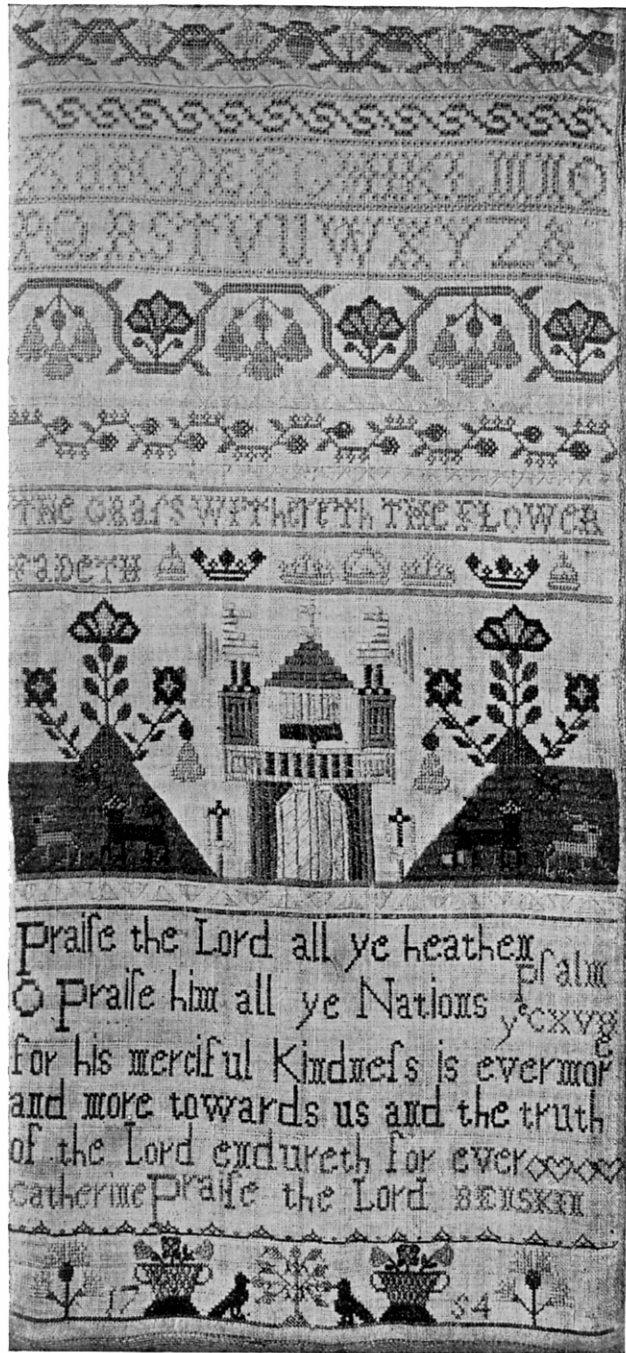 A B C D E F G H I K L M N O
P Q R S T V U W X Y Z &
THE GRASS WIThereTh THE FLOWER
FADETH
Praiſe the Lord all ye heathen
O Praiſe him all ye Nations
pſalm
yᵉ CXVII
for his merciful Kindneſs is evermore
and more towards us and the truth
of the Lord endureth for ever
catherine Praiſe the Lord BENSKIN
17 54